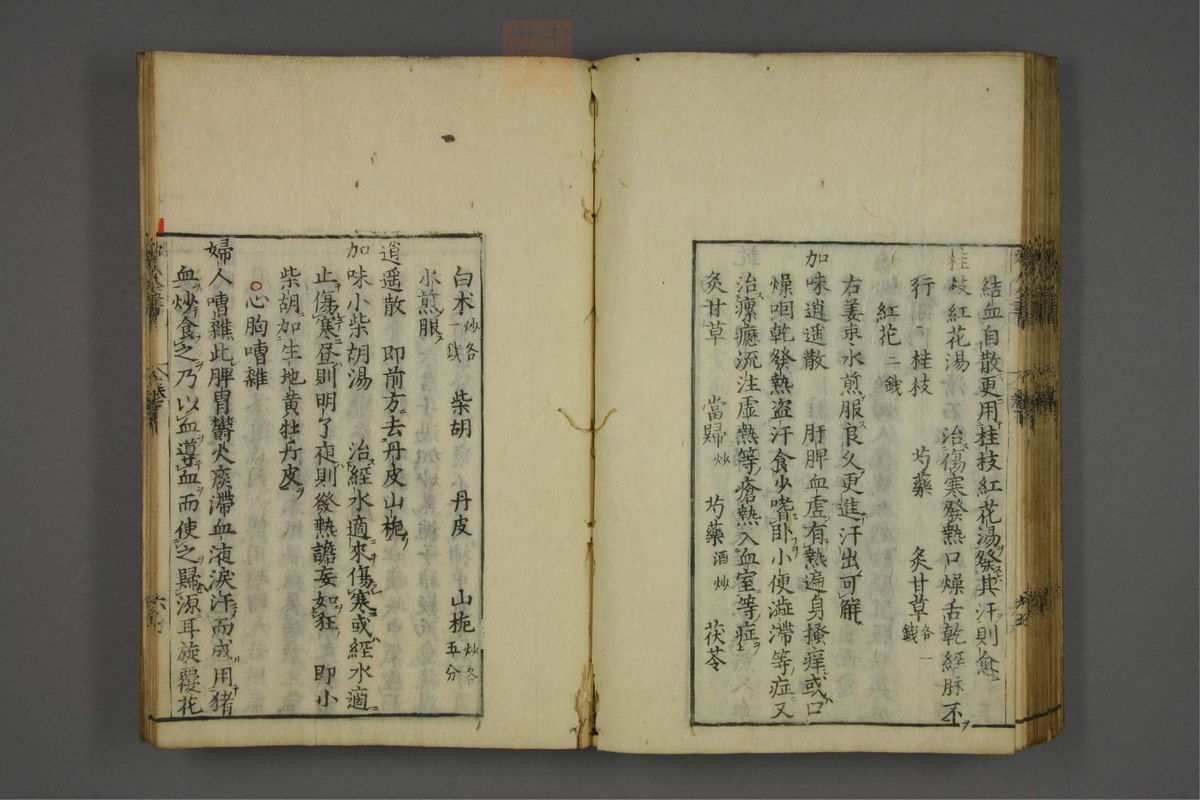 結血自散更用桂枝紅花湯發其汗則愈
桂枝紅花湯 治傷寒發熱口燥舌乾經脉不
行 桂枝 芍藥 炙甘草各一錢
紅花二錢
右姜棗水煎服良久更進汗出可解
加味逍遥散 肝脾血虛有熱遍身搔痒或口
燥咽乾發熱盗汗食少嗜卧小便澁滯等症又
治瘰癧流注虛熱等瘡熱入血室等症
炙甘草 當歸炒 芍藥酒炒 茯苓
白术炒各一錢 柴胡 丹皮 山梔炒各五分
水煎服
逍遥散 即前方去丹皮山梔
加味小柴胡湯 治經水適來傷寒或經水適
止傷寒昼則明了夜則發熱譫妄如狂 即小
柴胡加生地黄牡丹皮
○心胸嘈雜
婦人嘈雜此脾胃欝火痰滯血液淚汗而成用猪
血炒食之乃以血導血而使之歸源耳旋覆花